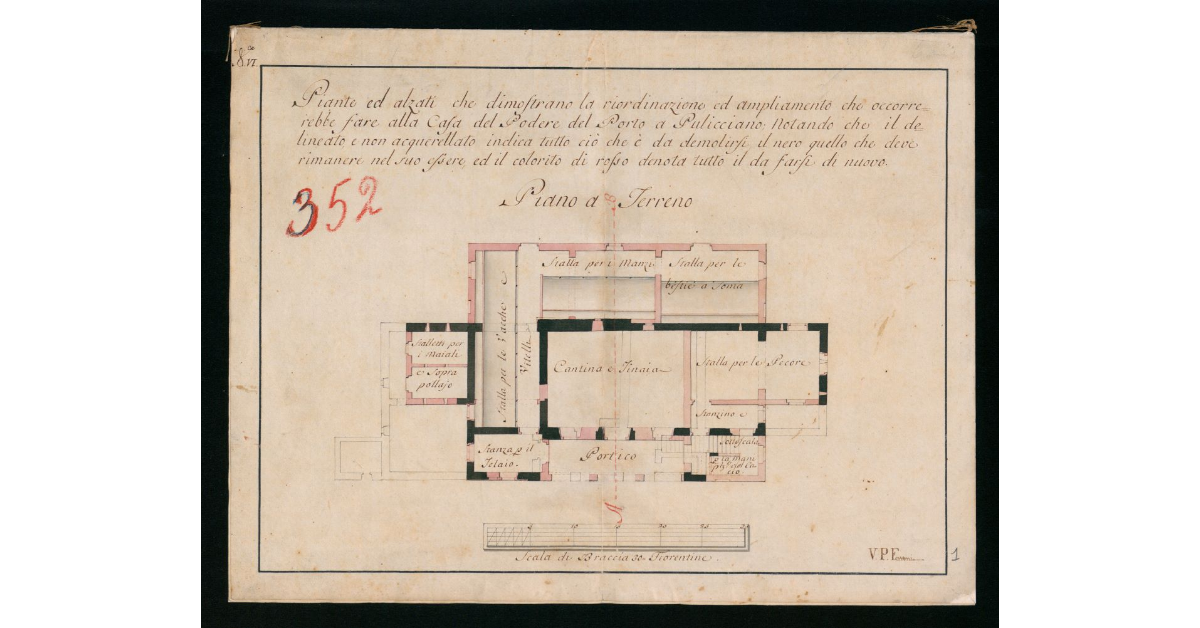 N.º VI
Piante ed alzati che dimostrano la riordinazione, ed ampliamento che occorre-
rebbe fare alla Casa del Podere del Porto a Pulicciano, Notando che il de-
lineato, e non acquerellato indica tutto ciò che è da demolirsi, il nero quello che deve
rimanere nel suo essere, ed il colorito di rosso denota tutto il da farsi di nuovo.
352
Piano a Terreno
B
Stalla per i Manzi
Stalla per le
bestie a Soma
Stalletti per
i Maiali
e Sopra
pollajo
Stalla per le Vacche e
Vitelli
Cantina e Tinaia
Stalla per le Pecore
Stanzino e
Sottoscala
Stanza p il
Telaio
Portico
A
5 10 15 20 25 30
Scala di Braccia 30 Fiorentine
V.P.F.
1